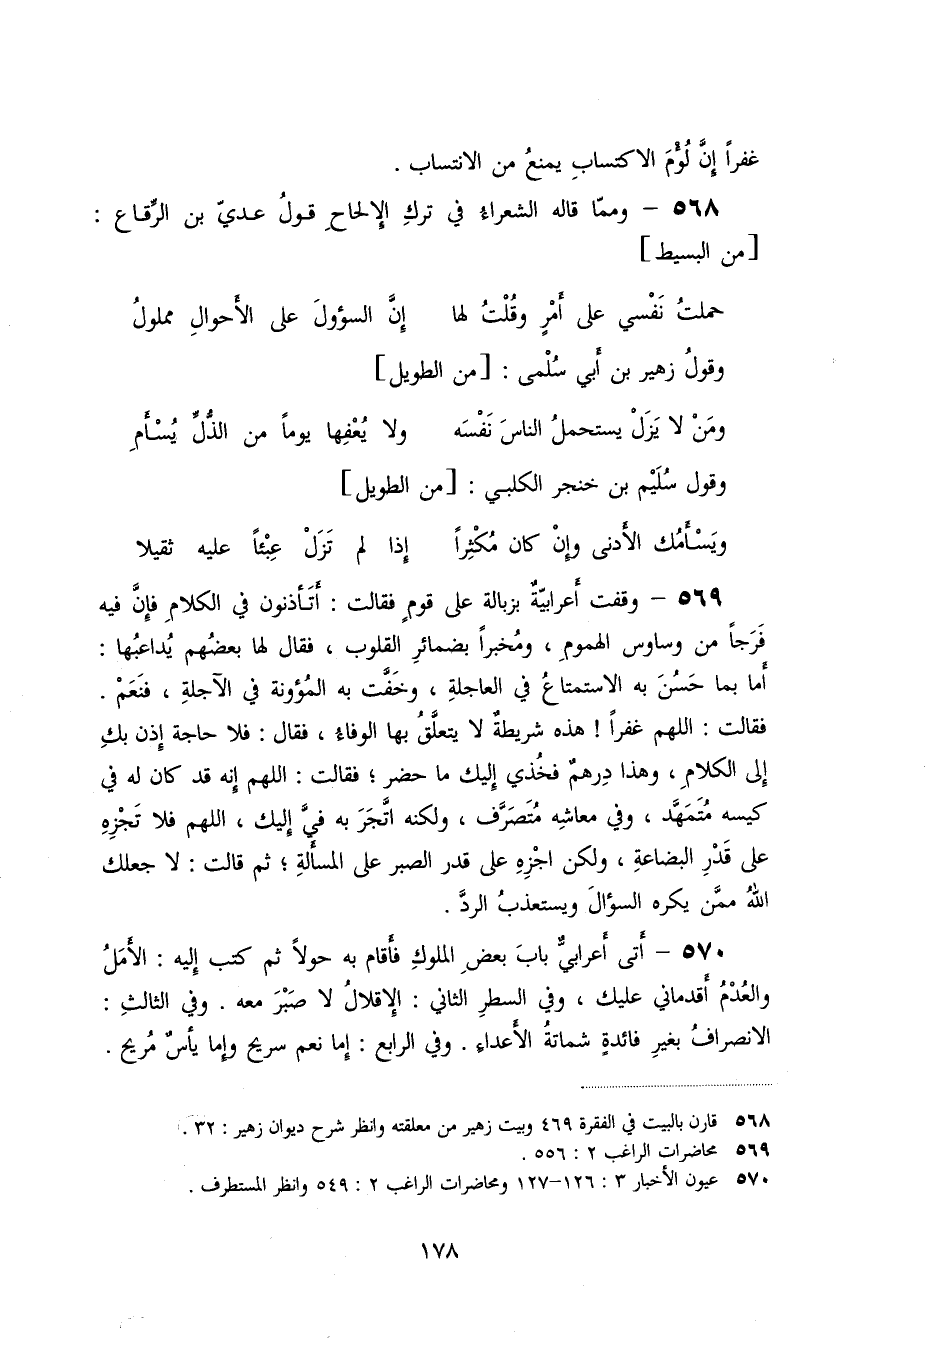 غفراً إِنَّ لُؤْمَ الاكتسابِ يمنعُ من الانتساب .
٥٦٨ – وممّا قاله الشعراءُ في تركِ الإِلحاحِ قولُ عديّ بن الرِّقاع :
[من البسيط]
حملتُ نَفْسي على أَمْرٍ وقُلْتُ لها إِنَّ السؤولَ على الأَحوالِ مملولُ
وقولُ زهير بن أَبي سُلْمى : [من الطويل]
ومَنْ لا يَزَلْ يستحملُ الناسَ نَفْسَه ولا يُعْفِها يوماً من الذُّلِّ يُسْأَمِ
وقول سُلَيْم بن خنجر الكلبي : [من الطويل]
ويَسْأَمُك الأَدنى وإِنْ كان مُكْثِراً إِذا لم تَزَلْ عِبْئاً عليه ثقيلا
٥٦٩ – وقفت أَعرابيّةٌ بزبالة على قومٍ فقالت : أَتَأذنون في الكلامِ فإِنَّ فيه
فَرَجاً من وساوس الهمومِ ، ومُخبراً بضمائرِ القلوب ، فقال لها بعضُهم يُداعبُها :
أَما بما حَسُنَ به الاستمتاعُ في العاجلةِ ، وخَفَّت به المُؤونة في الآجلةِ ، فنَعَمْ .
فقالت : اللهم غفراً ! هذه شريطةٌ لا يتعلَّقُ بها الوفاءُ ، فقال : فلا حاجة إِذن بكِ
إِلى الكلامِ ، وهذا دِرهمٌ فخُذي إِليك ما حضر ؛ فقالت : اللهم إِنه قد كان له في
كيسه مُتَمَهَّد ، وفي معاشِه مُتَصَرَّف ، ولكنه اتَّجَرَ به فيَّ إِليك ، اللهم فلا تَجْزِهِ
على قَدْرِ البضاعةِ ، ولكن اجْزِهِ على قدر الصبر على المسأَلةِ ؛ ثم قالت : لا جعلك
اللهُ ممَّن يكره السؤالَ ويستعذبُ الردَّ .
٥٧٠ – أَتى أَعرابيٌّ بابَ بعضِ الملوكِ فأَقام به حولاً ثم كتب إِليه : الأَمَلُ
والعُدْمُ أَقدماني عليك ، وفي السطرِ الثاني : الإِقلالُ لا صَبْرَ معه . وفي الثالثِ :
الانصرافُ بغيرِ فائدةٍ شماتةُ الأَعداءِ . وفي الرابع : إِما نعم سريح وإِما يأسٌ مُريح .
٥٦٨ قارن بالبيت في الفقرة ٤٦٩ وبيت زهير من معلقته وانظر شرح ديوان زهير : ٣٢ .
٥٦٩ محاضرات الراغب ٢ : ٥٥٦ .
٥٧٠ عيون الأخبار ٣ : ١٢٦–١٢٧ ومحاضرات الراغب ٢ : ٥٤٩ وانظر المستطرف .
١٧٨